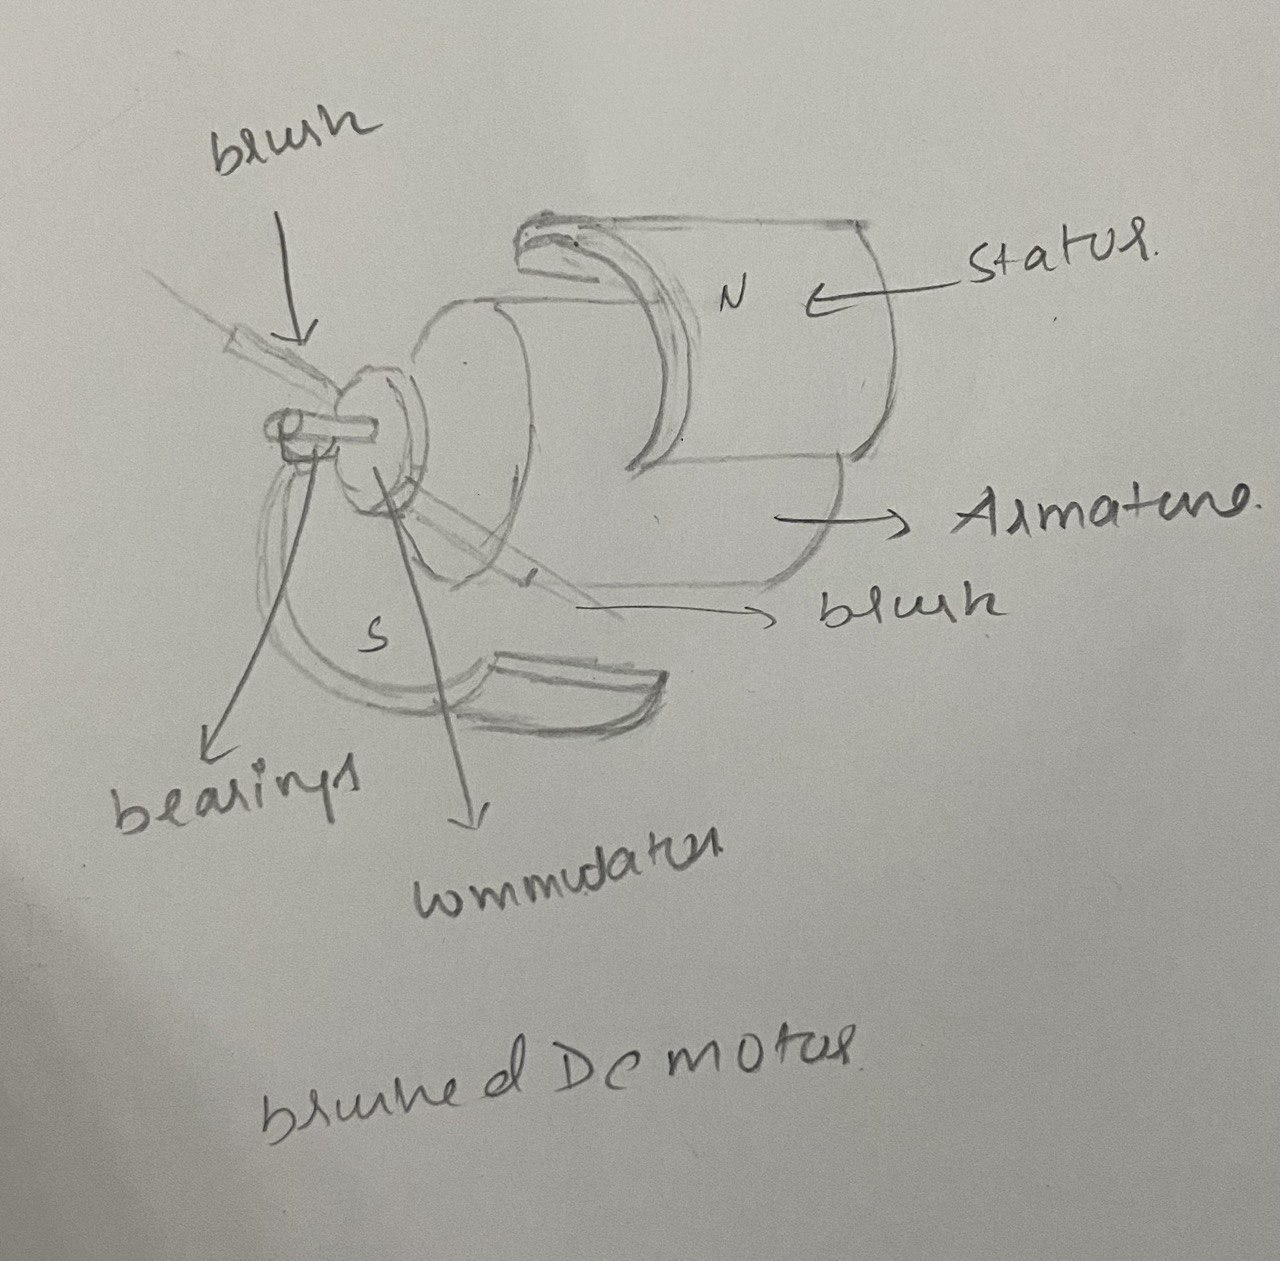 brush
stator.
N
Armature.
brush
S
bearings
commudator
brushed DC motor